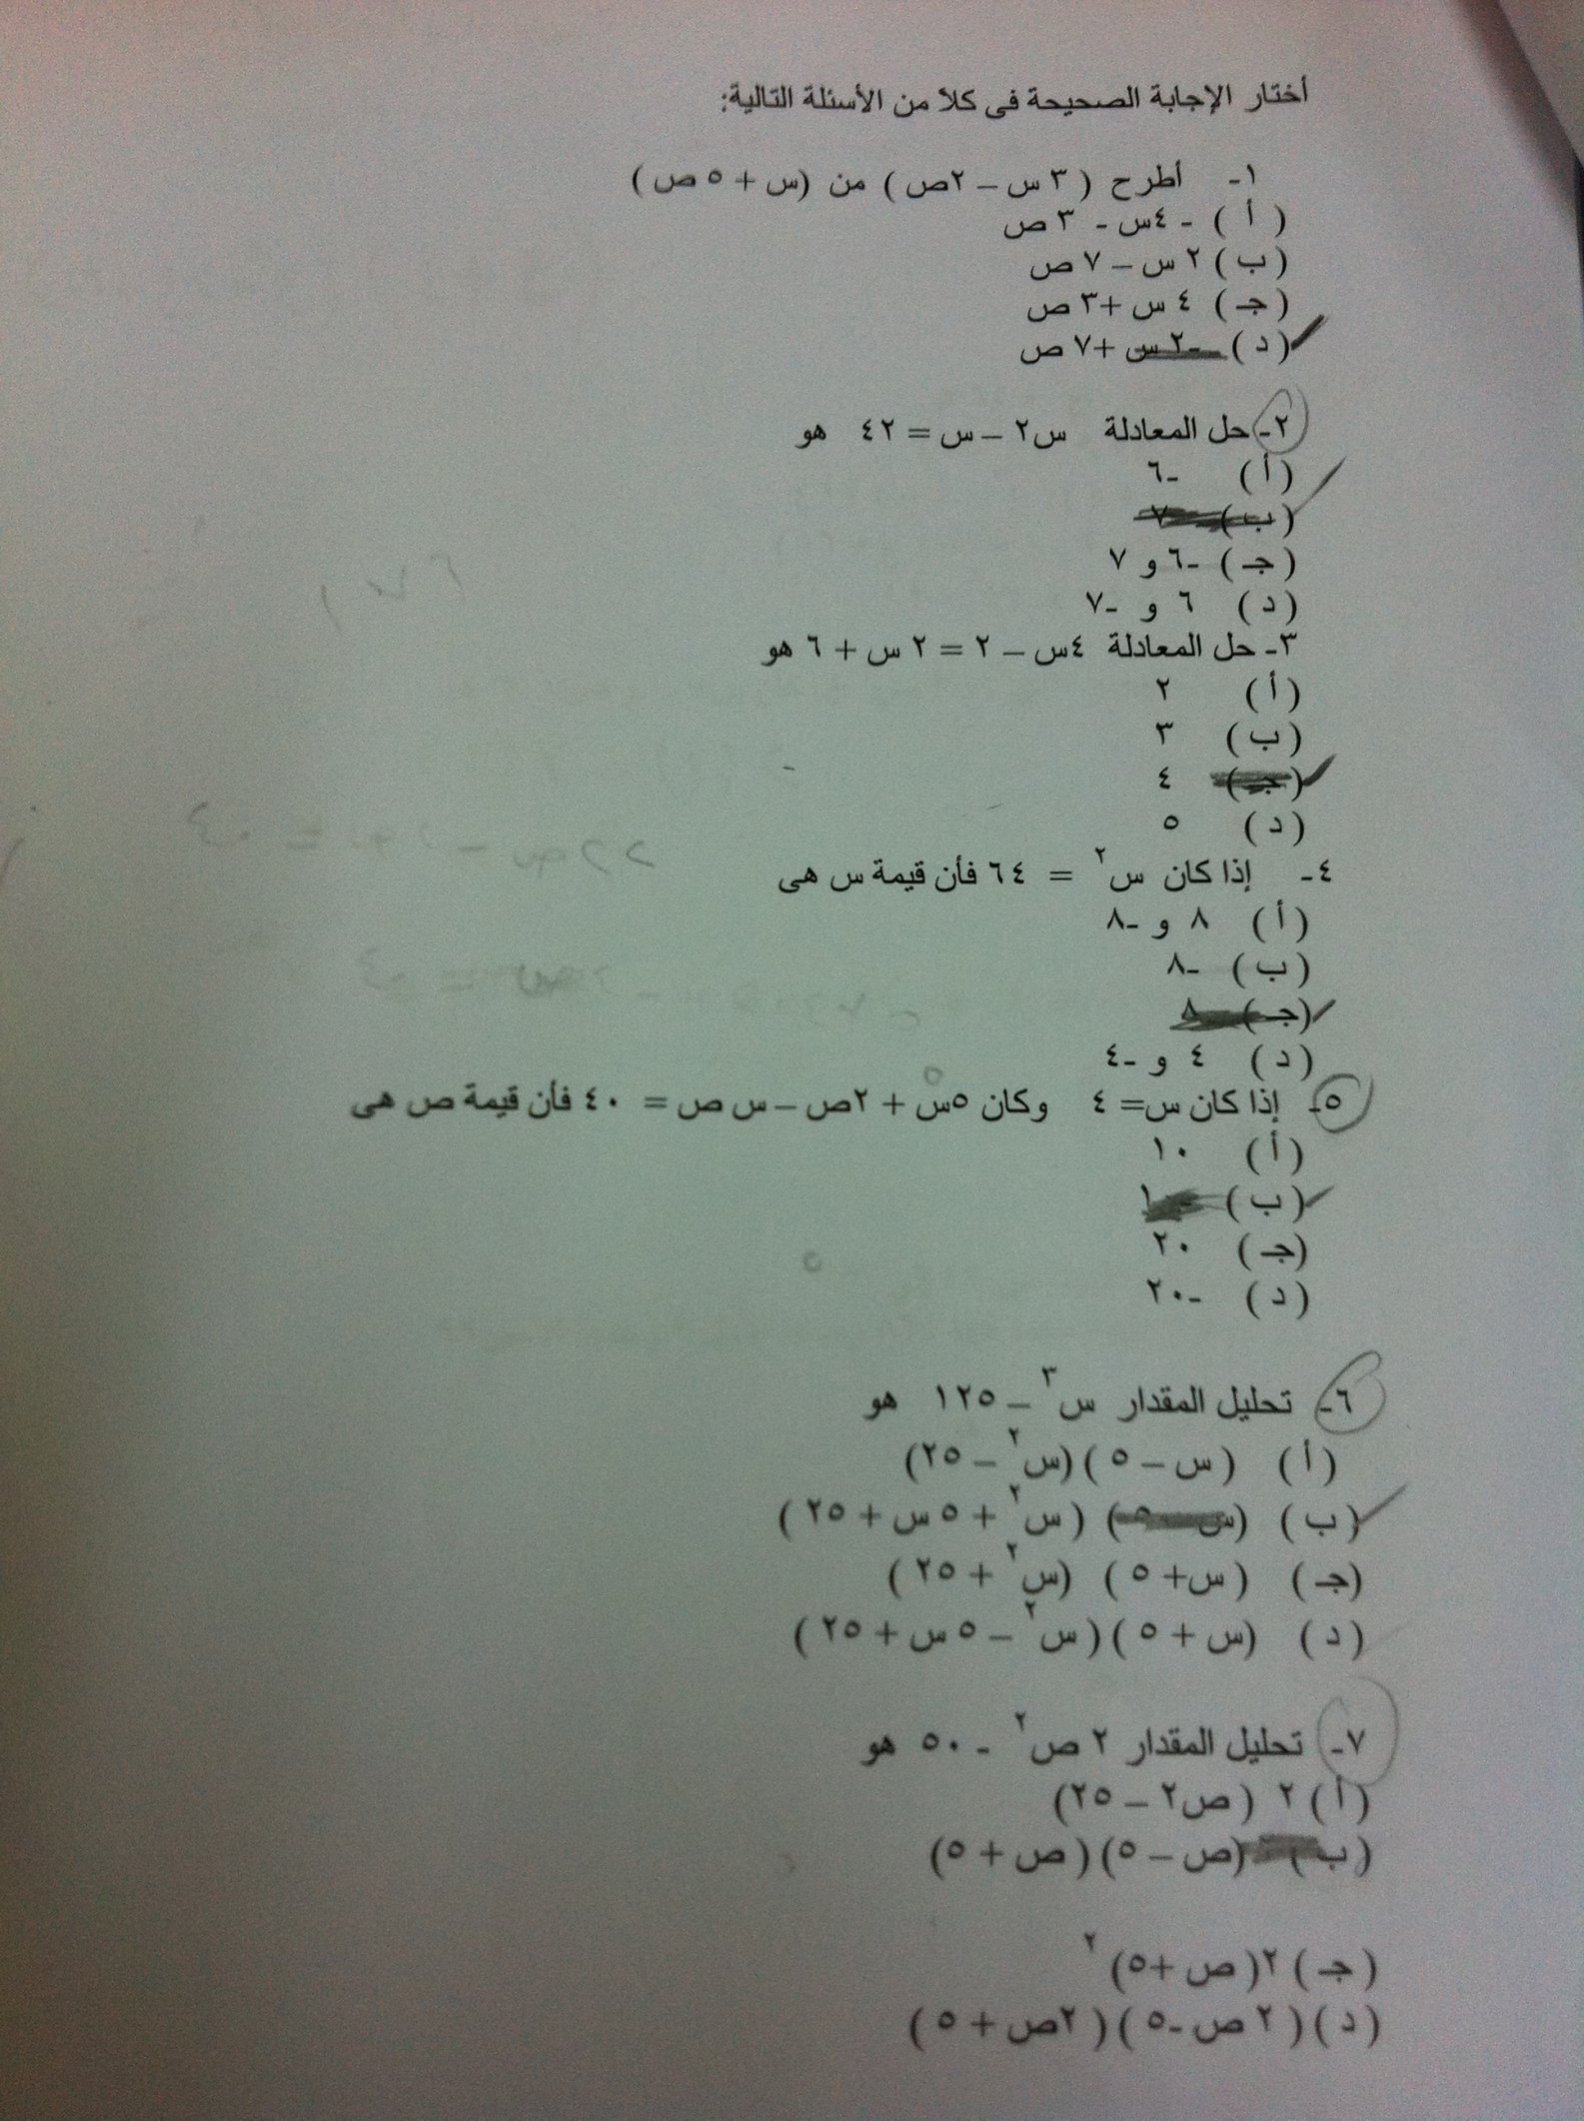 أختار الإجابة الصحيحة فى كلا من الأسئلة التالية:
١- أطرح ( ٣ س – ٢ص ) من (س + ٥ ص )
( أ ) - ٤س - ٣ ص
( ب ) ٢ س – ٧ ص
( جـ ) ٤ س +٣ ص
( د ) -٢ س +٧ ص
٢- حل المعادلة س٢ – س = ٤٢ هو
( أ ) -٦
( ب ) ٧
( جـ ) -٦ و ٧
( د ) ٦ و -٧
٣- حل المعادلة ٤س – ٢ = ٢ س + ٦ هو
( أ ) ٢
( ب ) ٣
( جـ ) ٤
( د ) ٥
٤- إذا كان س٢ = ٦٤ فأن قيمة س هى
( أ ) ٨ و -٨
( ب ) -٨
( جـ ) ٨
( د ) ٤ و -٤
٥- إذا كان س= ٤ وكان ٥س + ٢ص – س ص = ٤٠ فأن قيمة ص هى
( أ ) ١٠
( ب )
( جـ ) ٢٠
( د ) -٢٠
٦- تحليل المقدار س٣ – ١٢٥ هو
( أ ) ( س – ٥ ) (س٢ – ٢٥)
( ب ) (س ٥ ) ( س٢ + ٥ س + ٢٥ )
( جـ ) ( س+ ٥ ) (س٢ + ٢٥ )
( د ) (س + ٥ ) ( س٢ – ٥ س + ٢٥ )
٧- تحليل المقدار ٢ ص٢ - ٥٠ هو
( أ ) ٢ ( ص٢ – ٢٥)
( ب ) (ص – ٥) ( ص + ٥)
( جـ ) ٢( ص +٥)٢
( د ) ( ٢ ص -٥ ) ( ٢ص + ٥ )